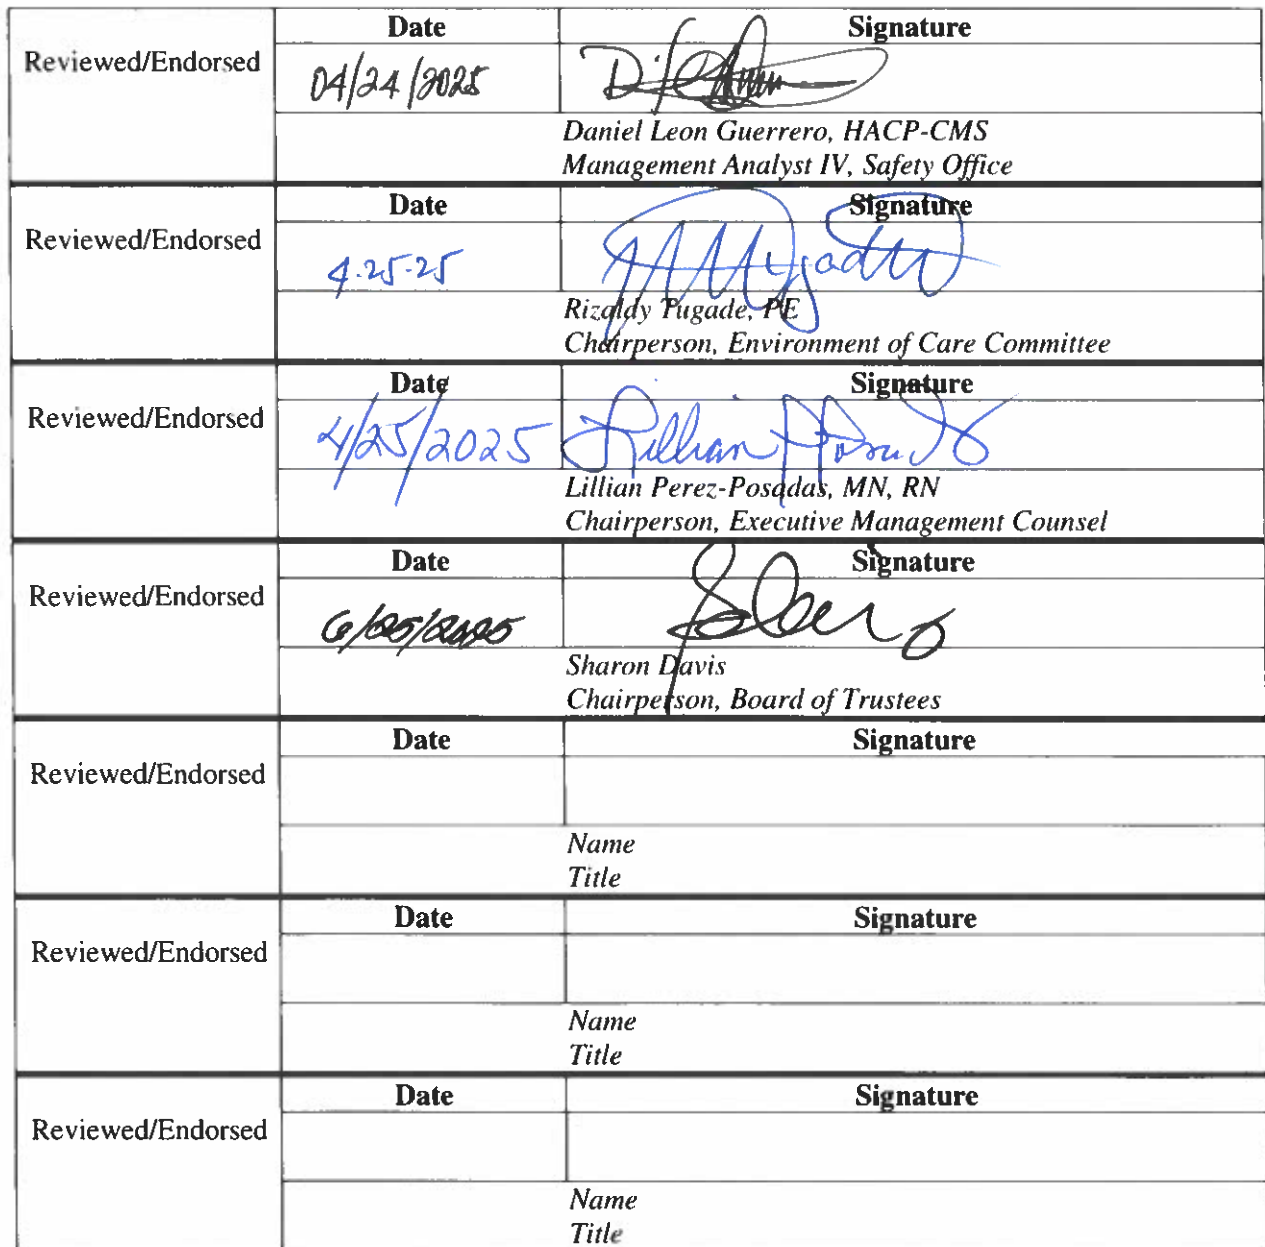 Date Signature
Reviewed/Endorsed
04/24/2025
Daniel Leon Guerrero, HACP-CMS
Management Analyst IV, Safety Office
Date Signature
Reviewed/Endorsed
4-25-25
Rizaldy Tugade, PE
Chairperson, Environment of Care Committee
Date Signature
Reviewed/Endorsed
4/25/2025 Lillian
Lillian Perez-Posadas, MN, RN
Chairperson, Executive Management Counsel
Date Signature
Reviewed/Endorsed
6/25/2025
Sharon Davis
Chairperson, Board of Trustees
Date Signature
Reviewed/Endorsed
Name
Title
Date Signature
Reviewed/Endorsed
Name
Title
Date Signature
Reviewed/Endorsed
Name
Title